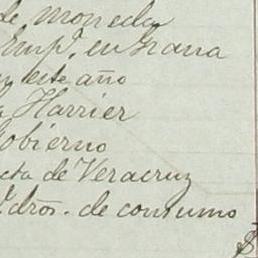 de moneda
Emp.º en Grana
en este año
a Harrier
Gobierno
cta de Veracruz
dros. de consumo
$